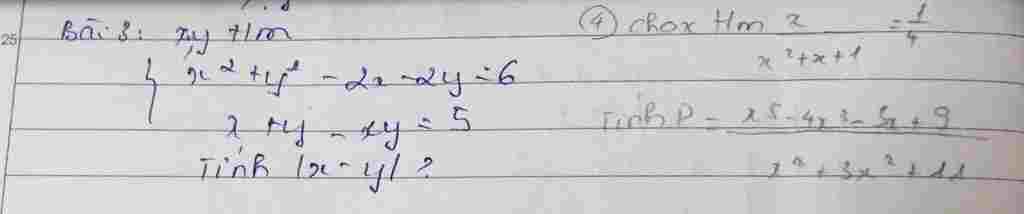 25
Bài 3: x,y t/m
x² + y² - 2x - 2y = 6
x + y - xy = 5
Tính |x - y| ?
④ cho x t/m x / x² + x + 1 = 1/4
Tính P = x⁵ - 4x³ - 3x + 9 / x⁴ + 3x² + 11